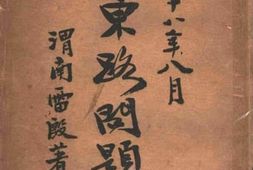 十八年八月
東路問題
渭南雷殷著